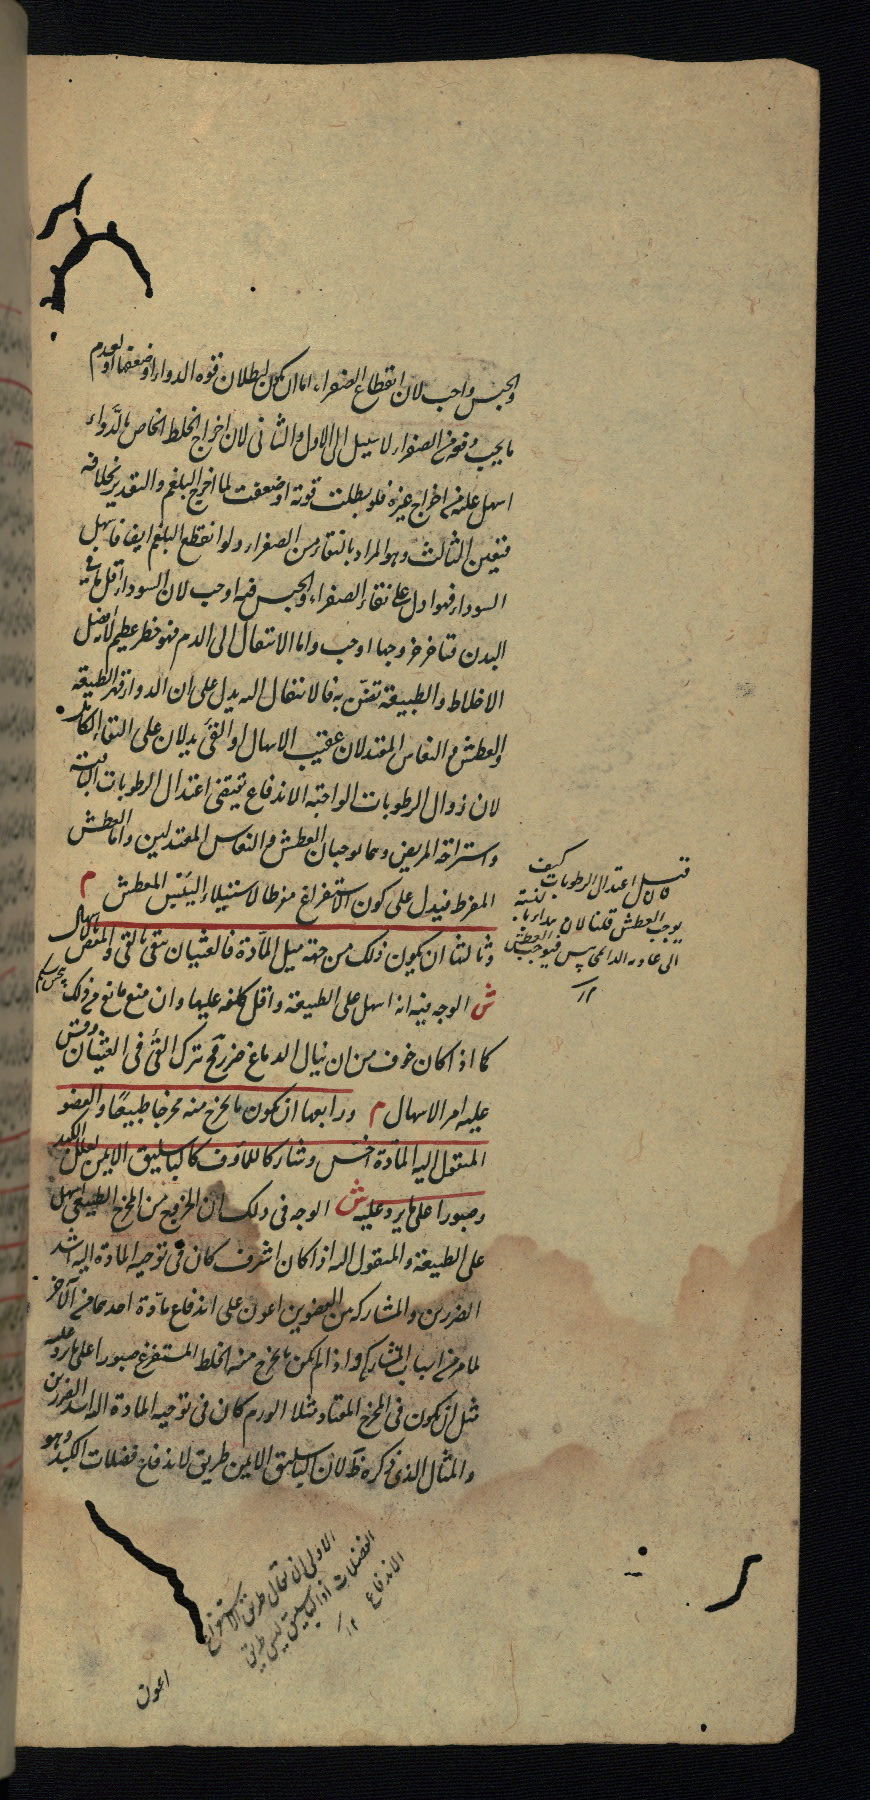 والحبس واجب لان انقطاع الصفراء اما ان يكون لبطلان قوة الدواء او ضعفها او لعدم
ما يجب دفعه من الصفراء لا سبيل الى الاول والثاني لان اخراج الخلط الخاص بالدواء
اسهل عليه من اخراج غيره فلو بطلت قوته او ضعفت لما اخرج البلغم والتقدير بخلافه
فتعين الثالث وهو المراد بالنقاء من الصفراء ولو انقطع البلغم ايضا فاسهل
السوداء فهو ادل على نقاء الصفراء والحبس فيه اوجب لان السوداء اقل ما في
البدن فتاخر خروجها اوجب واما الانتقال الى الدم فهو خطر عظيم لانه افضل
الاخلاط والطبيعة تضن به فالانتقال اليه يدل على ان الدواء قهر الطبيعة
والعطش والنعاس المعتدلان عقيب الاسهال او القئ يدلان على النقاء الكائن
لان زوال الرطوبات الواجبة الاندفاع يقتضى اعتدال الرطوبات الباقية
واستراحة المريض وهما يوجبان العطش والنعاس المعتدلين واما العطش
المفرط فيدل على كون الاستفراغ مفرطا لاستيلاء اليبس المعطش م
وثالثها ان يكون ذلك من جهة ميل المادة فالغثيان ينقى بالقئ والمغص بالاسهال
ش الوجه فيه انه اسهل على الطبيعة واقل كلفة عليها وان منع مانع من ذلك
كما اذا كان خوف من ان ينال الدماغ ضرر فح يترك القئ فى الغثيان وقس
عليه امر الاسهال م ورابعها ان يكون ما يخرج منه مخرجا طبيعيا والعضو
المنقول اليه المادة اخس ومشاركا للمأوف كالباسليق الايمن لعلل الكبد
وصبورا على ما يرد عليه ش الوجه فى ذلك ان الخروج من المخرج الطبيعى اسهل
على الطبيعة والمنقول اليه اذا كان اشرف كان فى توجيه المادة اليه اشد
الضررين والمشاركة من العضوين اعون على اندفاع مادة احدهما من الآخر
لما مر من اسباب المشاركة واذا لم يكن ما يخرج منه الخلط المستفرغ صبورا على ما يرد عليه
مثل ان يكون فى المخرج المعتاد مثلا الورم كان فى توجيه المادة اليه اشد الضررين
والمثال الذى ذكره ظ لان الباسليق الايمن طريق لاندفاع فضلات الكبد وهو
قيل كيف
اعتدال الرطوبات
يوجب العطش قلنا لان
١٢
الاولى ان يقال طريق الاستفراغ
الفضلات اذ الباسليق ليس طريق
الاندفاع ١٢
اعون